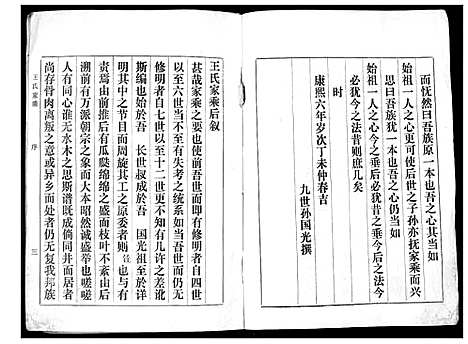 而怃然曰吾族原一本也吾之心其当如
始祖一人之心更可使后世之子孙亦抚家乘而兴
思曰吾族犹一本也吾之心仍当如
始祖一人之心今之垂后必犹昔之垂今后之法今
必犹今之法昔则庶几矣
时
康熙六年岁次丁未仲春吉
九世孙国光撰
王氏家乘后叙
甚哉家乘之要也使前吾世而即有修明者自四世
以至六世当不至有失考之统系如当吾世而仍无
修明者自七世以至十二世更不知有许多之差讹
斯编也始于吾 长世叔成于吾 国光祖至于详
明其中之节目而周旋其工之原委者则
责焉由前推后有瓜瓞绵绵之盛而枝叶不失由后
溯前有万派朝宗之象而大本昭然诚盛举也嗟嗟
人有同心谁无水木之思斯谱既成倘同井而居者
尚存骨肉离叛之意或异乡而处者仍无复我邦族
王氏家乘
序
三